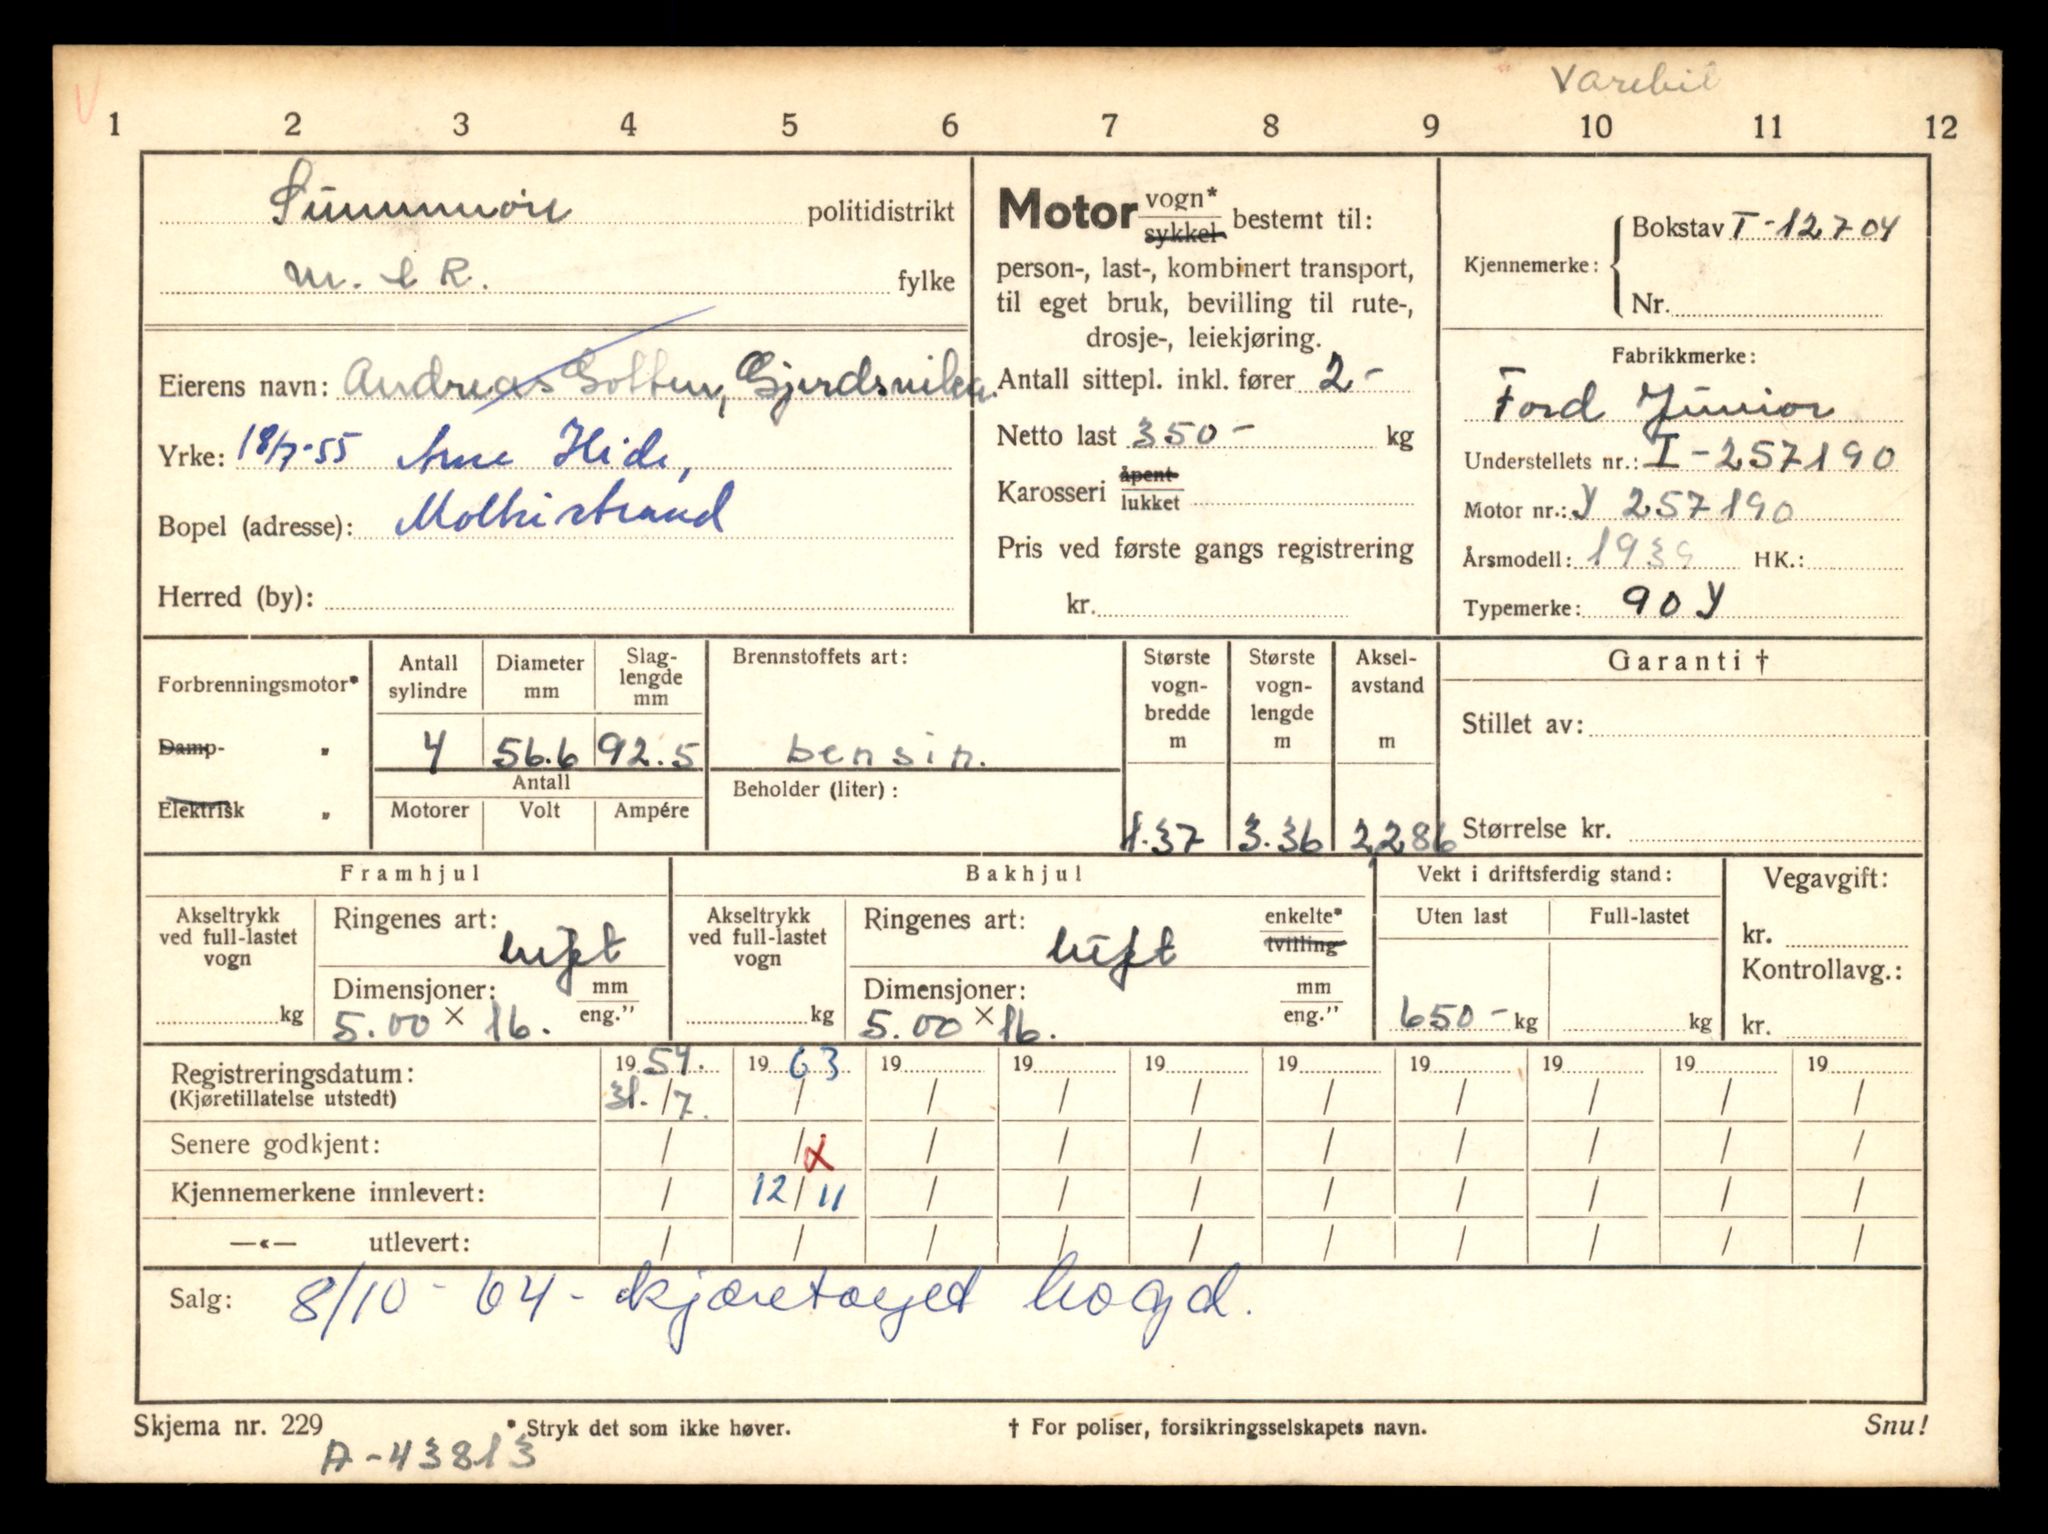 Varebil
V
1 2 3 4 5 6 7 8 9 10 11 12
Sunnmøre politidistrikt
M. & R. fylke
Eierens navn: Andreas Gjerdsvika.
Yrke: 18/7-55 Arne Hide,
Bopel (adresse): Moltustrand
Herred (by):
Motor vogn*
sykkel bestemt til:
person-, last-, kombinert transport,
til eget bruk, bevilling til rute-,
drosje-, leiekjøring.
Antall sittepl. inkl. fører 2-
Netto last 350- kg
Karosseri åpent
lukket
Pris ved første gangs registrering
kr.
Kjennemerke: Bokstav T-12704
Nr.
Fabrikkmerke:
Ford Junior
Understellets nr.: I-257190
Motor nr.: Y 257190
Årsmodell: 1939 HK.:
Typemerke: 90Y
Forbrenningsmotor*
Damp- "
Elektrisk "
Antall sylindre Diameter mm Slag-lengde mm
4 56.6 92.5
Antall
Motorer Volt Ampére
Brennstoffets art:
bensin.
Beholder (liter):
Største vogn-bredde m Største vogn-lengde m Aksel-avstand m
1.37 3.36 2,286
Garanti †
Stillet av:
Størrelse kr.
Framhjul
Akseltrykk ved full-lastet vogn
kg
Ringenes art: luft
Dimensjoner: mm
5.00 × 16. eng."
Bakhjul
Akseltrykk ved full-lastet vogn
kg
Ringenes art: enkelte*
luft tvilling
Dimensjoner: mm
5.00 × 16. eng."
Vekt i driftsferdig stand:
Uten last Full-lastet
650- kg kg
Vegavgift:
kr.
Kontrollavg.:
kr.
Registreringsdatum: 19 54. 19 63 19 19 19 19 19 19 19 19
(Kjøretillatelse utstedt) 31. / 7. / / / / / / / / /
Senere godkjent: / / x / / / / / / / /
Kjennemerkene innlevert: / 12/11 / / / / / / / /
—«— utlevert: / / / / / / / / / /
Salg: 8/10-64- kjøretøyet hogd.
Skjema nr. 229 * Stryk det som ikke høver. † For poliser, forsikringsselskapets navn. Snu!
A-43813